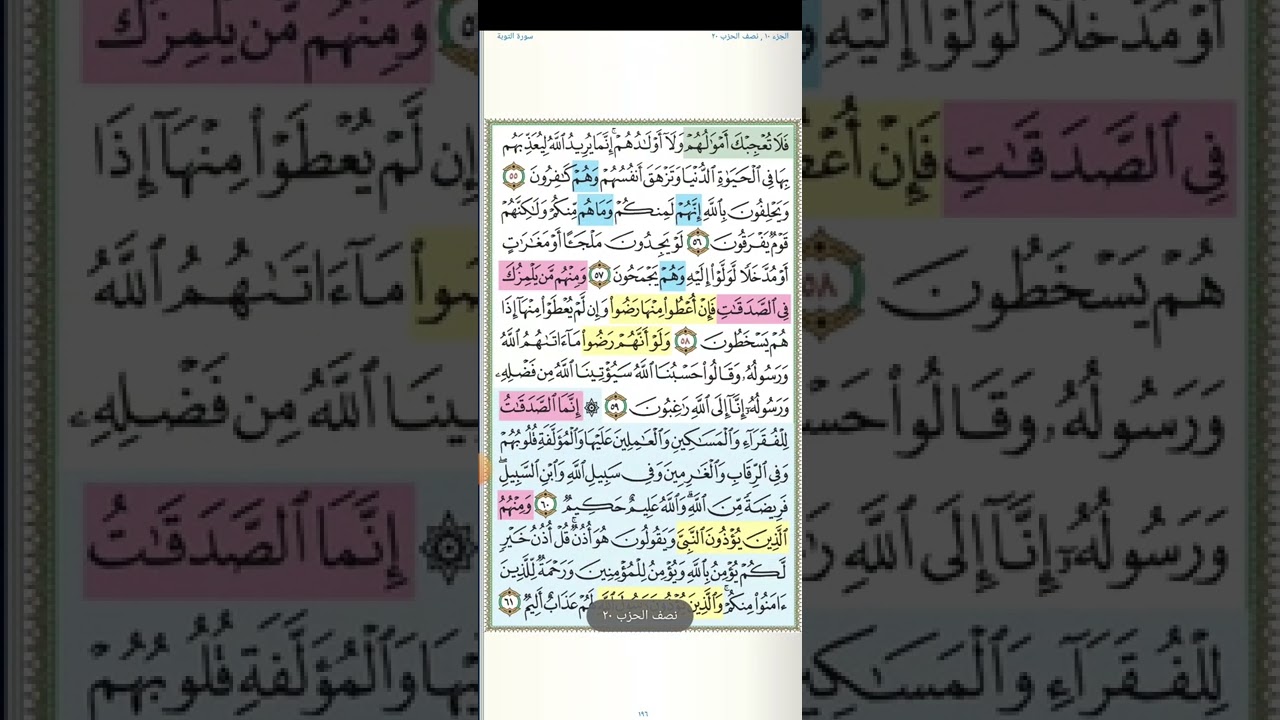 الجزء ١٠, نصف الحزب ٢٠
سورة التوبة
فَلَا تُعْجِبْكَ أَمْوَٰلُهُمْ وَلَآ أَوْلَـٰدُهُمْ ۚ إِنَّمَا يُرِيدُ ٱللَّهُ لِيُعَذِّبَهُم
بِهَا فِى ٱلْحَيَوٰةِ ٱلدُّنْيَا وَتَزْهَقَ أَنفُسُهُمْ وَهُمْ كَـٰفِرُونَ ٥٥
وَيَحْلِفُونَ بِٱللَّهِ إِنَّهُمْ لَمِنكُمْ وَمَا هُم مِّنكُمْ وَلَـٰكِنَّهُمْ
قَوْمٌ يَفْرَقُونَ ٥٦ لَوْ يَجِدُونَ مَلْجَـًٔا أَوْ مَغَـٰرَٰتٍ
أَوْ مُدَّخَلًا لَّوَلَّوْا۟ إِلَيْهِ وَهُمْ يَجْمَحُونَ ٥٧ وَمِنْهُم مَّن يَلْمِزُكَ
فِى ٱلصَّدَقَـٰتِ فَإِنْ أُعْطُوا۟ مِنْهَا رَضُوا۟ وَإِن لَّمْ يُعْطَوْا۟ مِنْهَآ إِذَا
هُمْ يَسْخَطُونَ ٥٨ وَلَوْ أَنَّهُمْ رَضُوا۟ مَآ ءَاتَىٰهُمُ ٱللَّهُ
وَرَسُولُهُۥ وَقَالُوا۟ حَسْبُنَا ٱللَّهُ سَيُؤْتِينَا ٱللَّهُ مِن فَضْلِهِۦ
وَرَسُولُهُۥٓ إِنَّآ إِلَى ٱللَّهِ رَٰغِبُونَ ٥٩ ۞ إِنَّمَا ٱلصَّدَقَـٰتُ
لِلْفُقَرَآءِ وَٱلْمَسَـٰكِينِ وَٱلْعَـٰمِلِينَ عَلَيْهَا وَٱلْمُؤَلَّفَةِ قُلُوبُهُمْ
وَفِى ٱلرِّقَابِ وَٱلْغَـٰرِمِينَ وَفِى سَبِيلِ ٱللَّهِ وَٱبْنِ ٱلسَّبِيلِ ۖ
فَرِيضَةً مِّنَ ٱللَّهِ ۗ وَٱللَّهُ عَلِيمٌ حَكِيمٌ ٦٠ وَمِنْهُمُ
ٱلَّذِينَ يُؤْذُونَ ٱلنَّبِىَّ وَيَقُولُونَ هُوَ أُذُنٌ ۚ قُلْ أُذُنُ خَيْرٍ
لَّكُمْ يُؤْمِنُ بِٱللَّهِ وَيُؤْمِنُ لِلْمُؤْمِنِينَ وَرَحْمَةٌ لِّلَّذِينَ
ءَامَنُوا۟ مِنكُمْ ۚ وَٱلَّذِينَ يُؤْذُونَ رَسُولَ ٱللَّهِ لَهُمْ عَذَابٌ أَلِيمٌ ٦١
نصف الحزب ٢٠
١٩٦